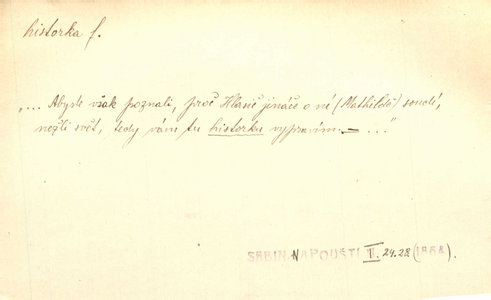 historka f.
„... Abyste však poznali, proč Hlasič jináče o ní (Mathildě) soudí,
nežli svět, tedy vám tu historku vypravím. — ..."
SABIN. NA POUŠTI II. 24.28 (1863).